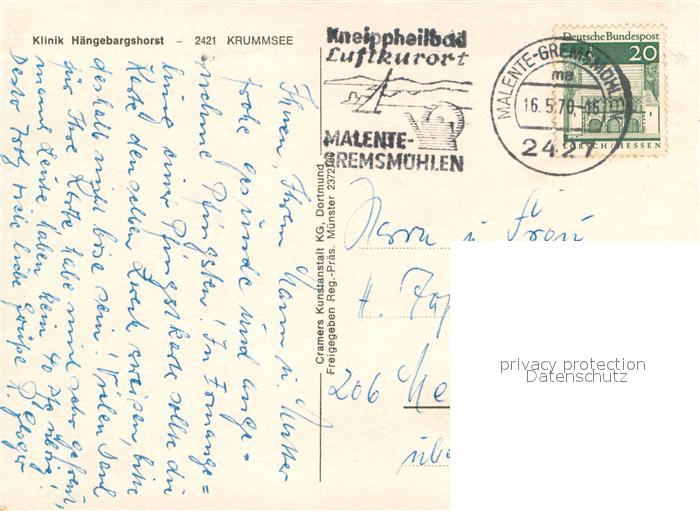 Klinik Hängebargshorst – 2421 KRUMMSEE
Kneippheilbad
Luftkurort
MALENTE-
GREMSMÜHLEN
MALENTE-GREMSMÜHLEN
ma
16.5.70-16
2427
Deutsche Bundespost
20
LORSCH/HESSEN
Cramers Kunstanstalt KG, Dortmund
Freigegeben Reg.-Präs. Münster 2372/69
Ihnen, Ihrem Mann u. Mutter
frohe gesunde und ange=
nehme Pfingsten! In Ermange=
lung einer Pfingstkarte sollte die
Karte denselben Zweck erweisen, bitte
deshalb nicht böse sein! Vielen Dank
für Ihre Karte, habe mich sehr gefreut,
manche Leute haben kein 40 Pfg übrig!
Desto trotz viele liebe Grüße
Herrn u. Frau
H.
206
über
privacy protection
Datenschutz